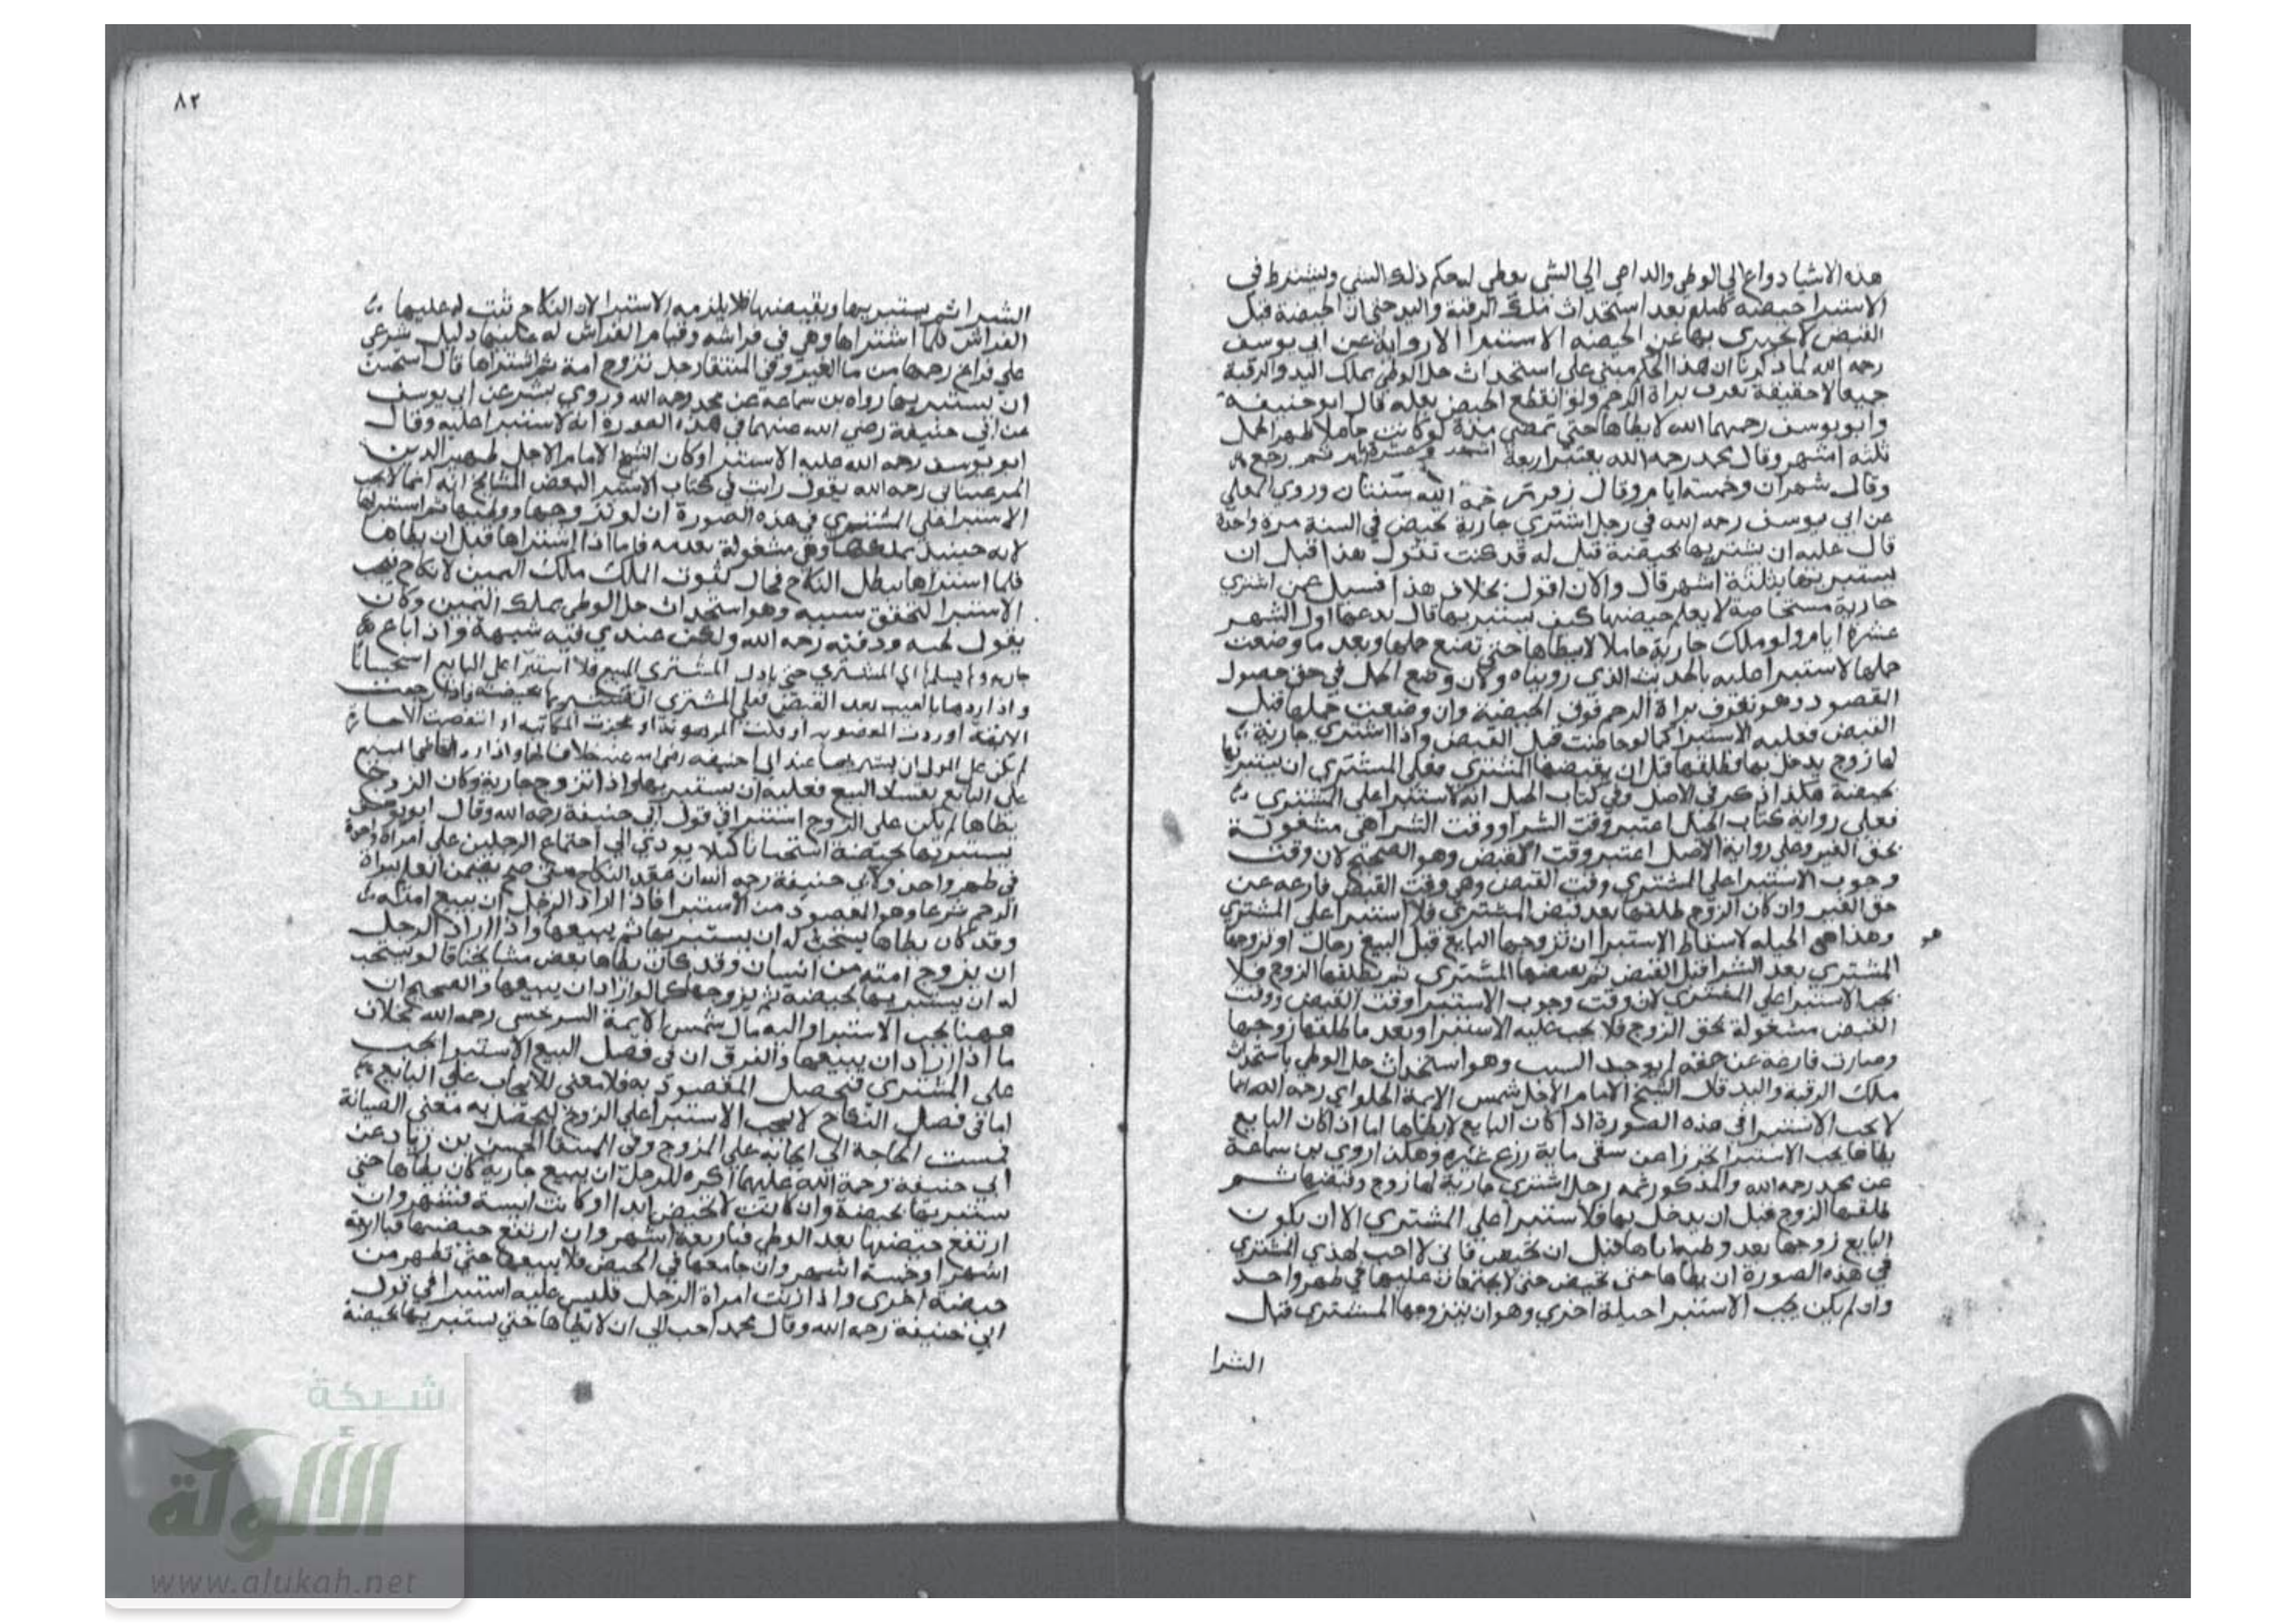 هذه الاشيا دواع الي الوطي والداعي الي الشي يعطي له حكم ذلك الشي ويشترط في
الاستبرا حيضه كملع بعد استحداث ملك الرقبة واليد حتي ان الحيضة قبل
القبض لا يجتزي بها عن الحيضه الاستبرا الا رواية عن ابي يوسف
رحمه الله لما ذكرنا ان هذا الحكم مبني علي استحداث حل الوطي بملك اليد والرقبة
جميعا لا حقيقة تعرف براة الرحم ولو انقطع الحيض بعلة قال ابو حنيفة
وابو يوسف رحمهما الله لا يطاها حتي تمضي مدة لو كانت حاملا ظهر الحمل
ثلثه اشهر وقال محمد رحمه الله يعتبر اربعة اشهر وعشرة ايام ثم رجع
وقال شهران وخمسة ايام وقال زفر رحمه الله سنتان وروي المعلي
عن ابي يوسف رحمه الله في رجل اشتري جارية تحيض في السنة مرة واحدة
قال عليه ان يستبريها بحيضة قيل له قد كنت تقول هذا قبل ان
يستبريها بثلثة اشهر قال والان اقول بخلاف هذا فسيل عن اشتري
جارية مستحاضة لا يعلم حيضها كيف يستبريها قال يدعها اول الشهر
عشرة ايام ولو ملك جارية حاملا لا يطاها حتي تضع حملها وبعد ما وضعت
حملها لا استبرا عليه بالحديث الذي رويناه ولان وضع الحمل في حق حصول
المقصود وهو تعرف براة الرحم فوق الحيضة وان وضعت حملها قبل
القبض فعليه الاستبرا كما لو حاضت قبل القبض واذا اشتري جارية
لها زوج يدخل بها فطلقها قبل ان يقبضها المشتري فعلي المشتري ان يستبريها
بحيضة هكذا ذكر في الاصل وفي كتاب الحيل انه لا استبرا علي المشتري
فعلي رواية كتاب الحيل اعتبر وقت الشرا ووقت الشرا هي مشغولة
بحق الغير وعلي رواية الاصل اعتبر وقت القبض وهو الصحيح لان وقت
وجوب الاستبرا علي المشتري وقت القبض وهي وقت القبض فارغه عن
حق الغير وان كان الزوج طلقها بعد قبض المشتري فلا استبرا علي المشتري
وهذا هي الحيله لاسقاط الاستبرا ان تزوجها البايع قبل البيع رجلا او تزوجها
هو
المشتري بعد الشرا قبل القبض ثم يقبضها المشتري ثم يطلقها الزوج فلا
يجب الاستبرا علي المشتري لان وقت وجوب الاستبرا وقت القبض ووقت
القبض مشغولة بحق الزوج فلا يجب عليه الاستبرا وبعد ما طلقها زوجها
وصارت فارغة عن حقه لم يوجد السبب وهو استحداث حل الوطي باستحداث
ملك الرقبة واليد قال الشيخ الامام الاجل شمس الايمة الحلواي رحمه الله انما
لا يجب الاستبرا في هذه الصورة اذا كان البايع لا يطاها اما اذا كان البايع
يطاها يجب الاستبرا تحرزا عن سقي مايه زرع غيره وهكذا روي بن سماعة
عن محمد رحمه الله والمذكور ثمه رجل اشتري جارية لها زوج وقبضها ثم
طلقها الزوج قبل ان يدخل بها فلا استبرا علي المشتري الا ان يكون
البايع زوجها بعد وطيه اياها قبل ان تحيض فاني لا احب لهذي المشتري
في هذه الصورة ان يطاها حتي تحيض حتي لا يجتمعان عليها في طهر واحد
وان لم يكن يجب الاستبرا حيلة اخري وهو ان يتزوجها المشتري قبل
الشرا
٨٢
الشرا ثم يستبريها ويقبضها فلا يلزمه الاستبرا لان النكاح ثبت له عليها
الفراش فلما اشتراها وهي في فراشه وقيام الفراش له عليها دليل شرعي
علي فراغ رحمها من ما الغير وفي المنتقا رجل تزوج امة ثم اشتراها قال استحسن
ان يستبريها رواه بن سماعة عن محمد رحمه الله وروي بشر عن ابي يوسف
عن ابي حنيفة رضي الله عنهما في هذه الصورة انه لا استبرا عليه وقال
ابو يوسف رحمه الله عليه الاستبرا وكان الشيخ الامام الاجل ظهير الدين
المرغيناني رحمه الله يقول رايت في كتاب الاستبرا لبعض المشايخ انه انما لا يجب
الاستبرا علي المشتري في هذه الصورة ان لو تزوجها ووطيها ثم اشتراها
لانه حينيذ يملكها وهي مشغولة بعدته فاما اذا اشتراها قبل ان يطاها
فلما اشتراها بطل النكاح فحال ثبوت الملك ملك اليمين لا نكاح فيجب
الاستبرا لتحقق سببه وهو استحداث حل الوطي بملك اليمين وكان
يقول رحمه الله ولكن عندي فيه شبهة واذا باع
جاريه ولم يسلمها الي المشتري حتي المشتري البيع فلا استبرا علي البايع استحسانا
واذا ردها بالعيب بعد القبض فعلي المشتري ان بحيضة واذا رجعت
الابقة او ردت المغصوبه او فكت المرهونة او عجزت المكاتبه او انتقضت الاجارة
لم يكن علي المولي ان يستبريها عند ابي حنيفه رضي الله عنه خلافا لهما واذا رد القاضي المبيع
علي البايع بفساد البيع فعليه ان يستبريها واذا تزوج جارية وكان الزوج
يطاها لم يكن علي الزوج استبرا في قول ابي حنيفة رحمه الله وقال ابو يوسف
يستبريها بحيضة استحسانا كيلا يودي الي اجتماع الرجلين علي امراة واحدة
في طهر واحد ولابي حنيفة رحمه الله ان عقد النكاح متي صح تضمن العلم ببراة
الرحم شرعا وهو المقصود من الاستبرا فاذا اراد الرجل ان يبيع امته
وقد كان يطاها يستحب له ان يستبريها ثم يبيعها واذا اراد الرجل
ان يزوج امته من انسان وقد كان يطاها بعض مشايخنا قالو يستحب
له ان يستبريها بحيضة ثم يزوجها كما لو اراد ان يبيعها والصحيح ان
ههنا يجب الاستبرا واليه مال شمس الايمة السرخسي رحمه الله بخلاف
ما اذا اراد ان يبيعها والفرق ان في فصل البيع الاستبرا يجب
علي المشتري فيحصل المقصود به فلا معني للايجاب علي البايع
اما في فصل النكاح لا يجب الاستبرا علي الزوج ليحصل به معني الصيانة
فمست الحاجة الي ايجابه علي المزوج وفي المنتقا الحسن بن زياد عن
ابي حنيفة رحمة الله عليهما اكره للرجل ان يبيع جارية كان يطاها حتي
يستبريها بحيضة وان كانت لا تحيض ابدا او كانت ايسة فشهر وان
ارتفع حيضها بعد الوطي فباربعة اشهر وان ارتفع حيضها فباربعة
اشهر او خمسة اشهر وان جامعها في الحيض فلا يبيعها حتي تطهر من
حيضة اخري واذا زنت امراة الرجل فليس عليه استبرا في قول
ابي حنيفة رحمه الله وقال محمد احب الي ان لا يطاها حتي يستبريها بحيضة
شبكة
الألوكة
www.alukah.net